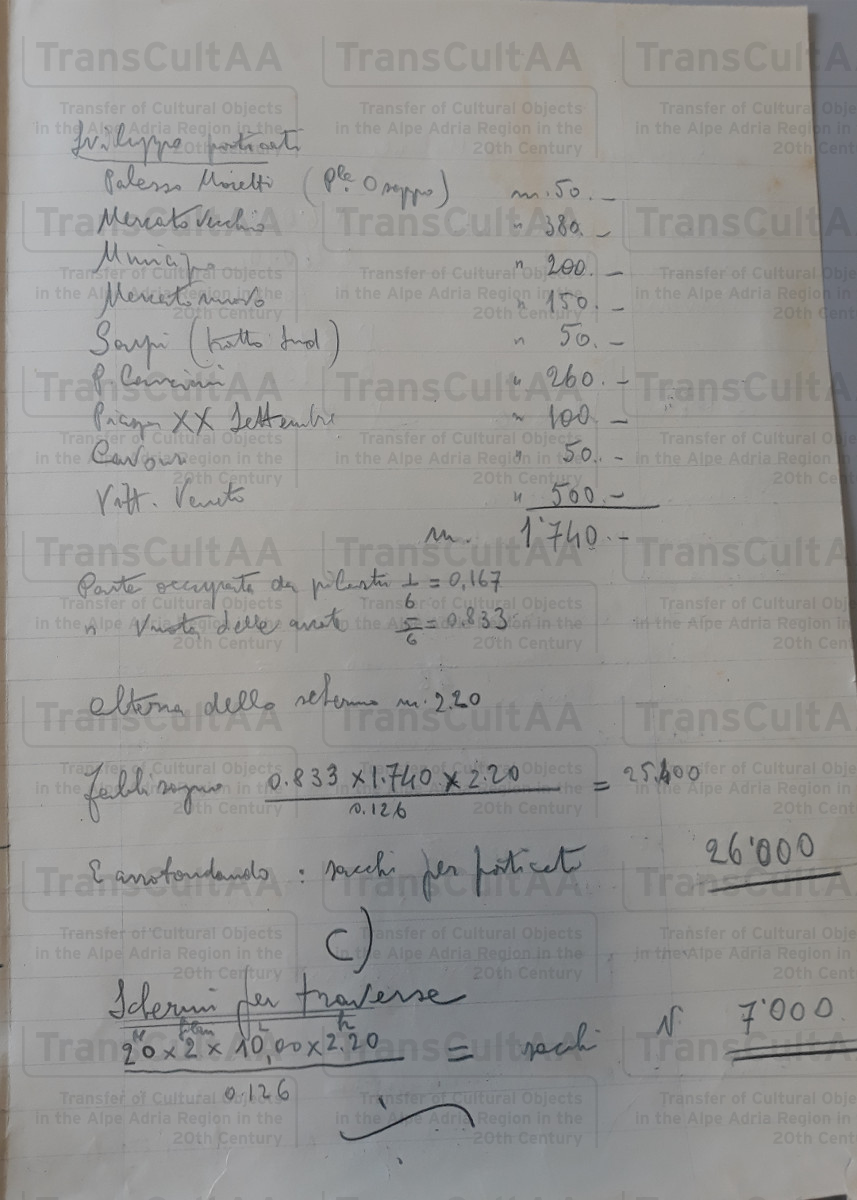 Sviluppo porticati
Palazzo Moretti (P.le Osoppo) m. 50.—
Mercatovecchio " 380.—
Municipio " 200.—
Mercatonuovo " 150.—
Sarpi (tratto Sud) " 50.—
P. Canciani " 260.—
Piazza XX Settembre " 100.—
Cavour " 50.—
Vitt. Veneto " 500.—
m. 1'740.—
Parte occupata da pilastri 1/6 = 0,167
" vuota delle arcate 5/6 = 0.833
Altezza dello schermo m. 2.20
Fabbisogno 0.833 x 1.740 x 2.20 / 0.126 = 25.400
E arrotondando: sacchi per porticati 26'000
C)
Schermi per traverse
N° L h
20 x 2 x 10,00 x 2.20 / 0.126 = sacchi N 7'000
TransCultAA
Transfer of Cultural Objects
in the Alpe Adria Region in the
20th Century